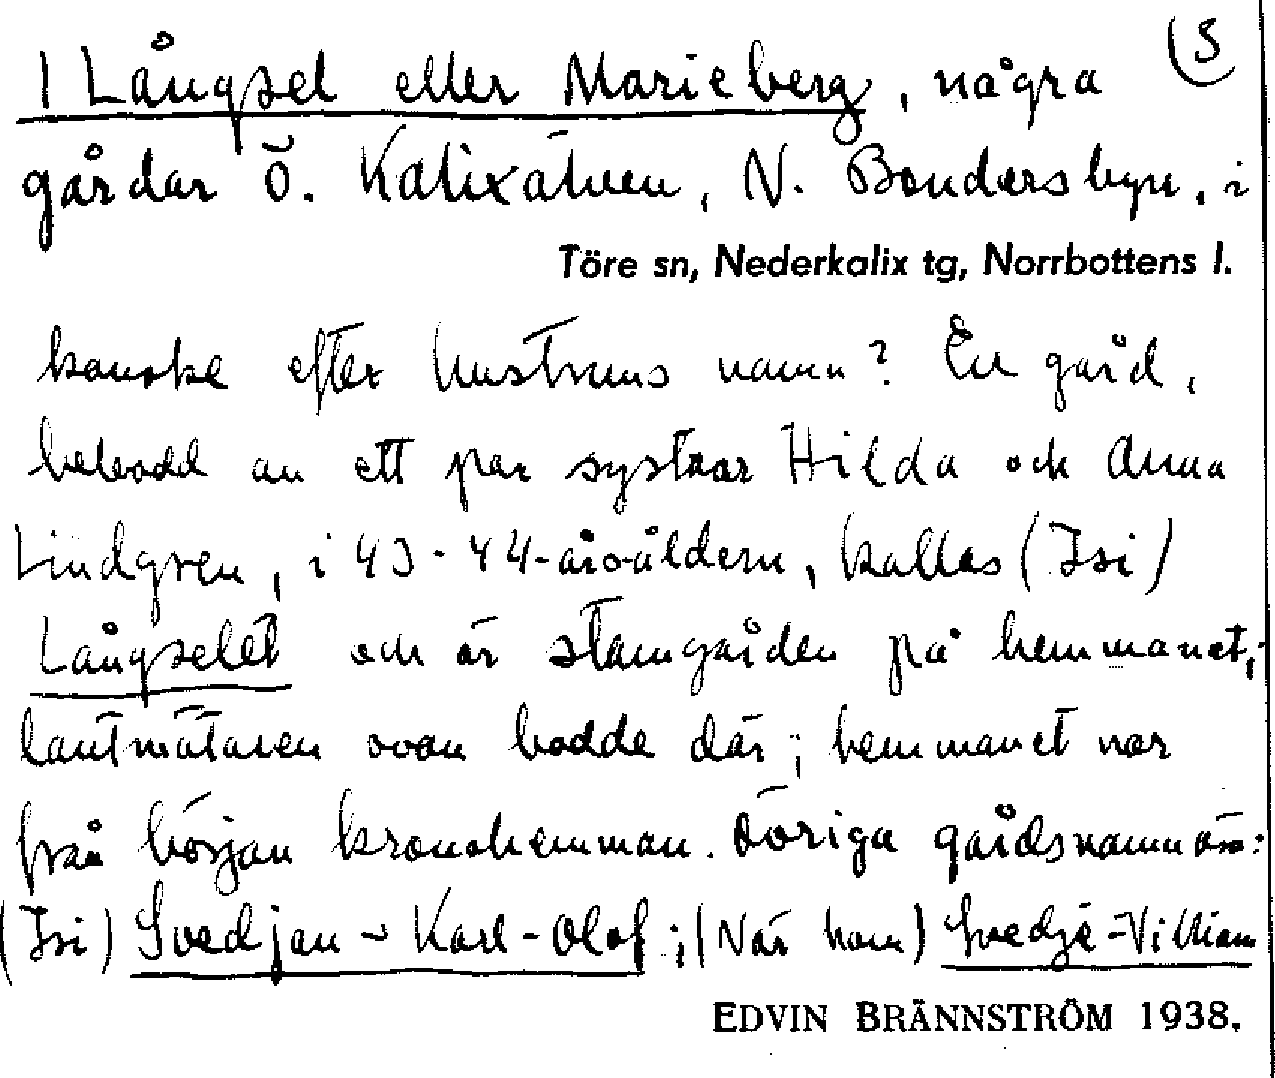 (3
1 Långsel eller Marieberg, några
gårdar Ö. Kalixälven, N. Bondersbyn, i
Töre sn, Nederkalix tg, Norrbottens l.
kanske efter hustruns namn? En gård,
bebodd av ett par systrar Hilda och Anna
Lindgren, i 43-44-årsåldern, kallas (Isi)
Långselet och är stamgården på hemmanet;
lantmätaren ovan bodde där; hemmanet var
från början kronohemman. Övriga gårdsnamn äro:
(Isi) Svedjan - Karl-Olof; (När hom) Svedje-Villiam
EDVIN BRÄNNSTRÖM 1938.